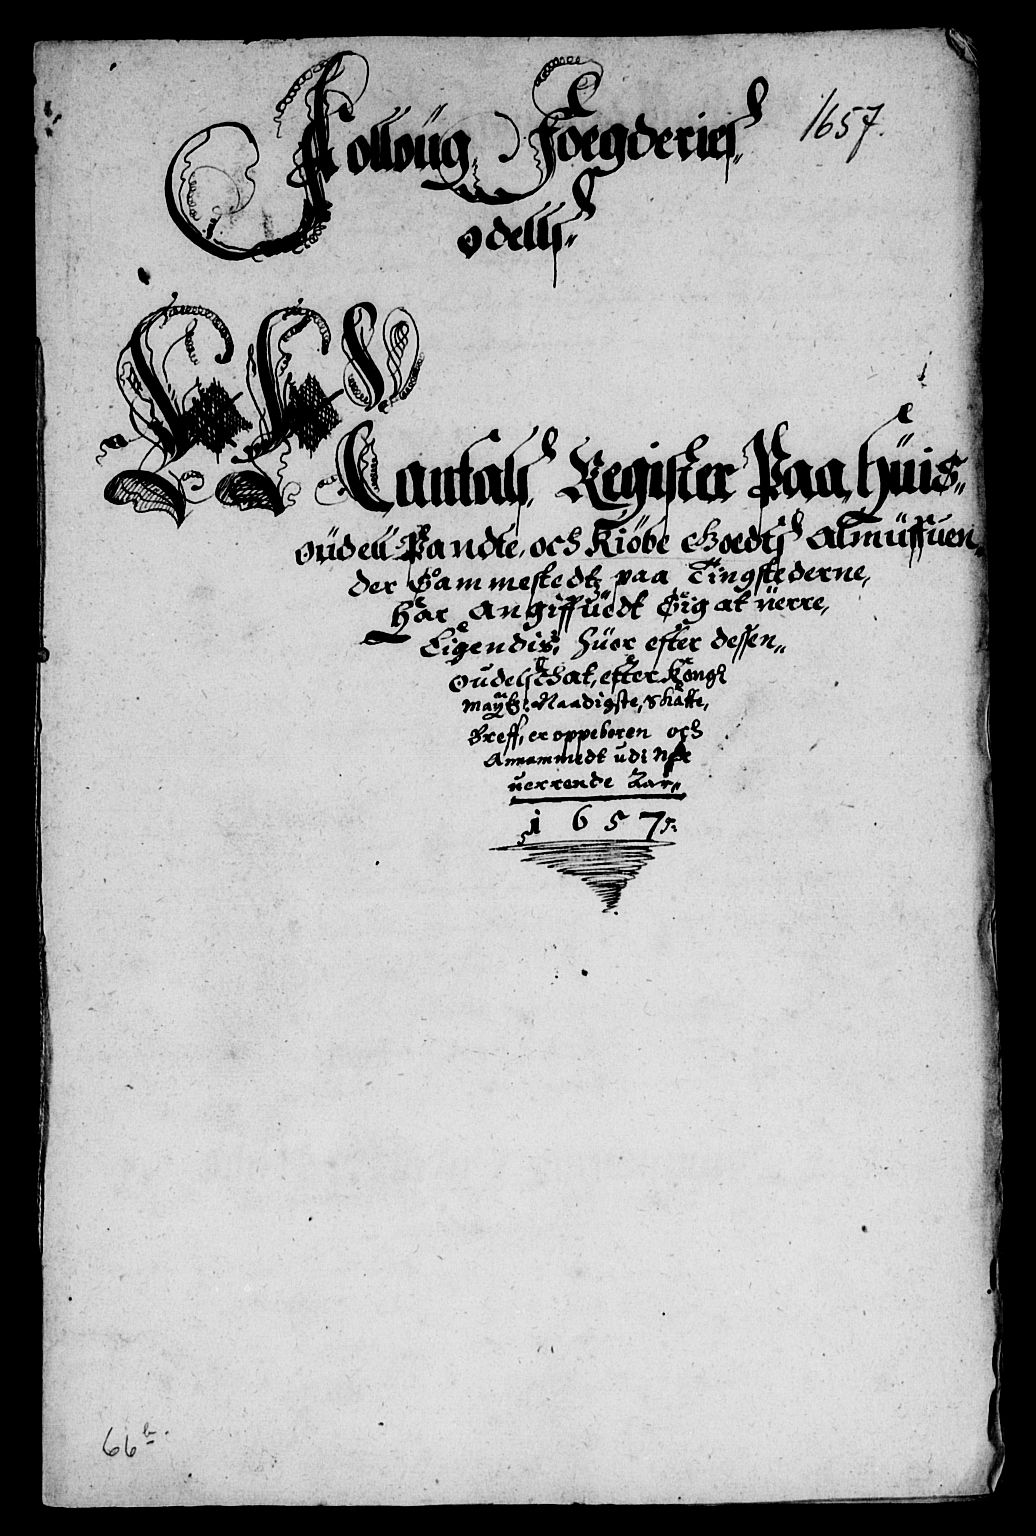 Folloüg, Foegderies 1657.
odells
Qvantals, Register Paa, hüis,,
oüdell Pandte, och Kiöbe Goedts Almüffuen,,
der Sammestedtz paa Tingstederne,
Har Angiffüedt Sig at üerre,
Eigendis, hüor efter dessen,,
oudelsschat, efter Kongl
Mayttz. Naadigste, Skatte,
Breff, er oppeboren och
Annammedt udi Nær
uerrende Aar,,
1657.
66 b.